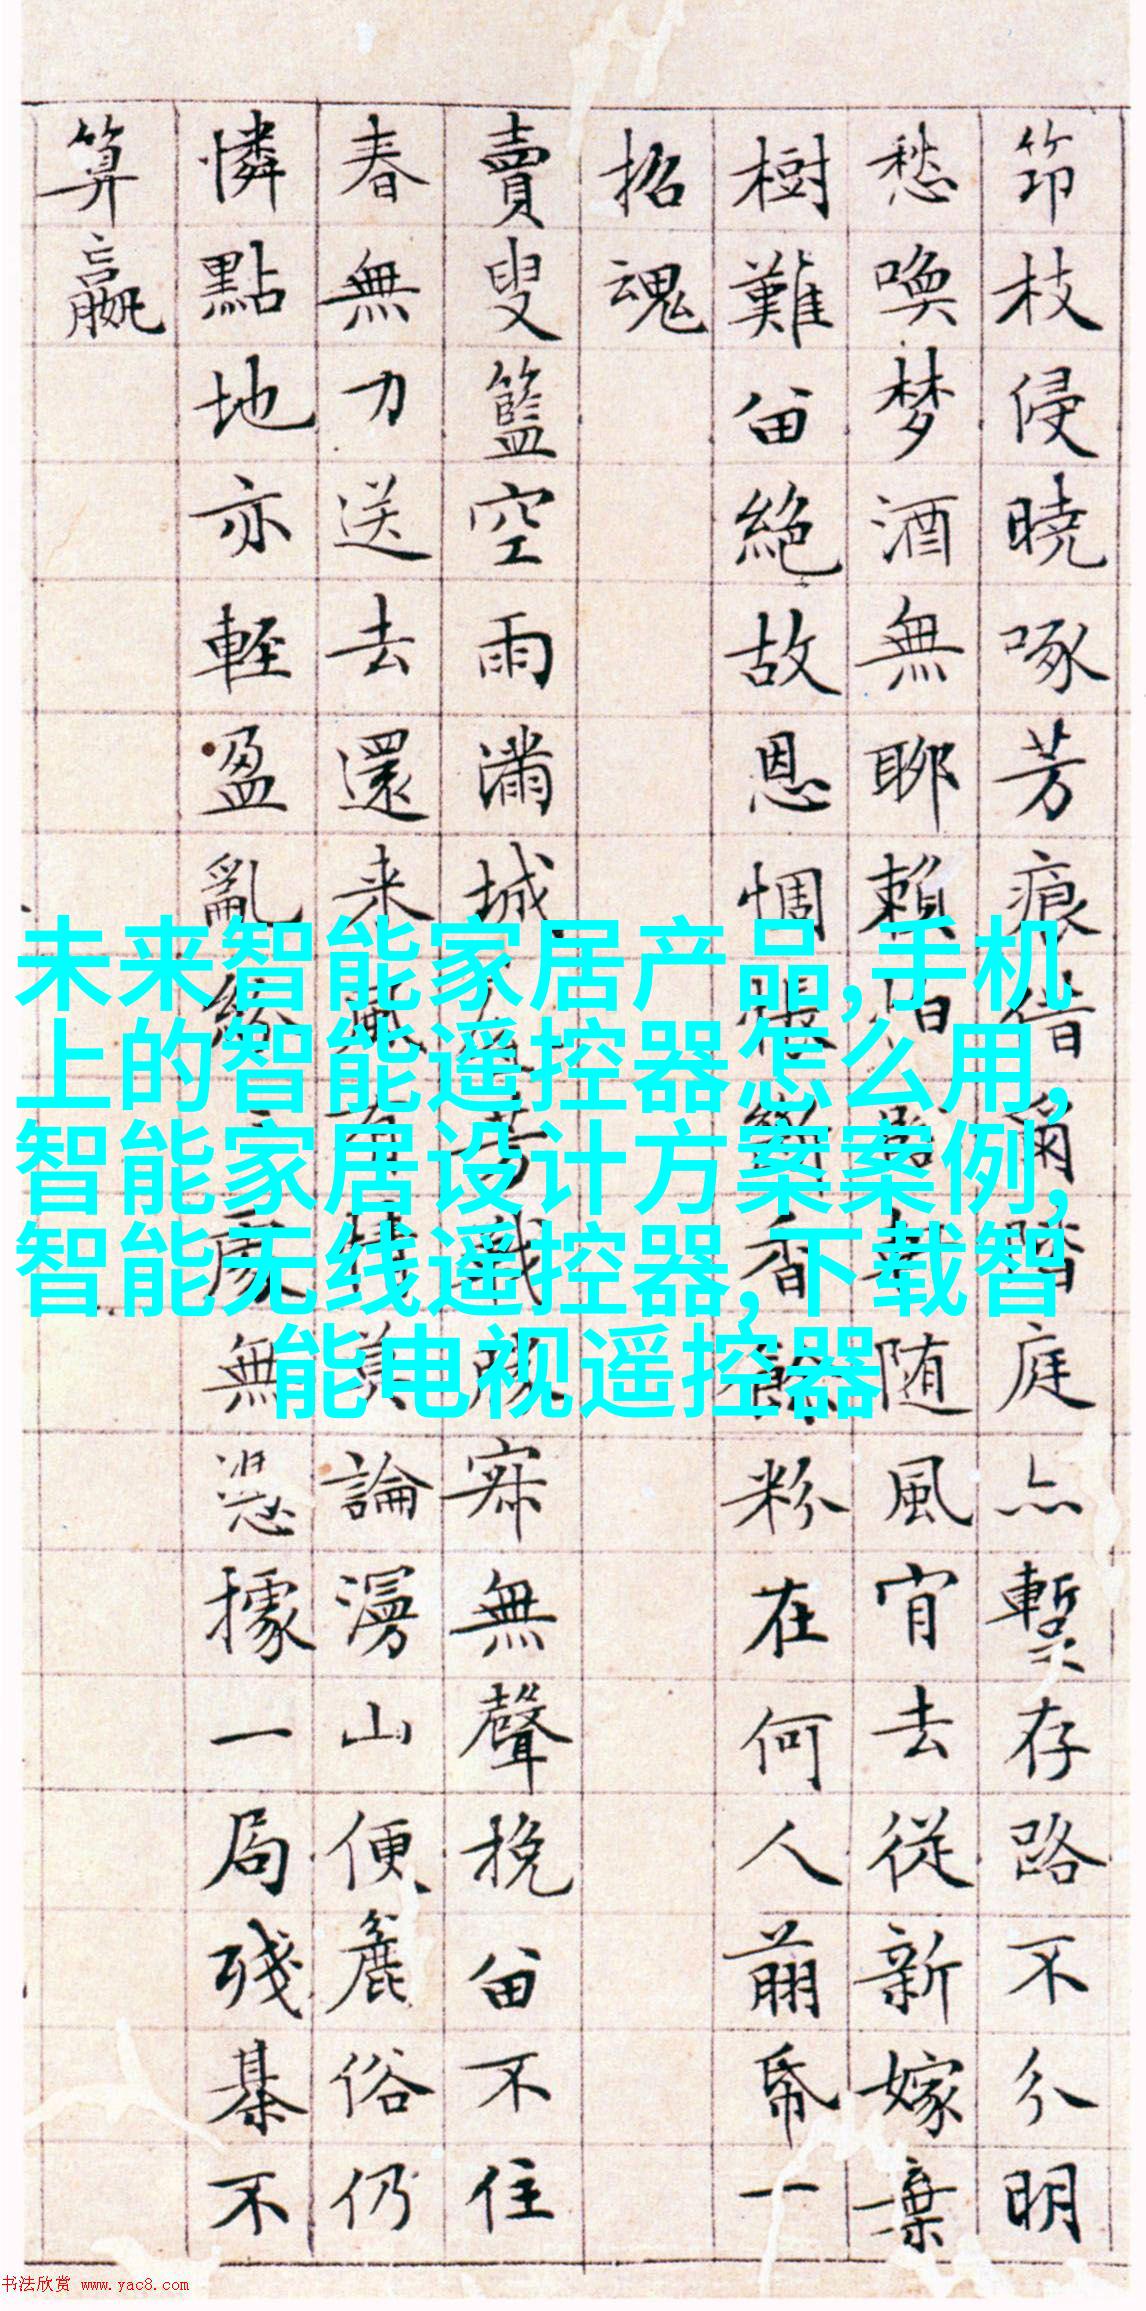 筇枝侵曉啄芳痕借爾階庭亦暫存路不分明
愁喚梦酒無聊賴怕随風宵去從新嫁棄
樹難留絕故恩惆悵香餘粉在何人萠帋一
招魂
賣叟籃空雨滿城芳寂無聲挽留不住
春無力送去還来風論漫山便麄俗仍
憐點地亦輕盈亂紛無憑據一局殘棊不
算贏
未来智能家居产品,手机
上的智能遥控器怎么用,
智能家居设计方案案例,
智能无线遥控器,下载智
能电视遥控器
书法欣赏 www.yac8.com